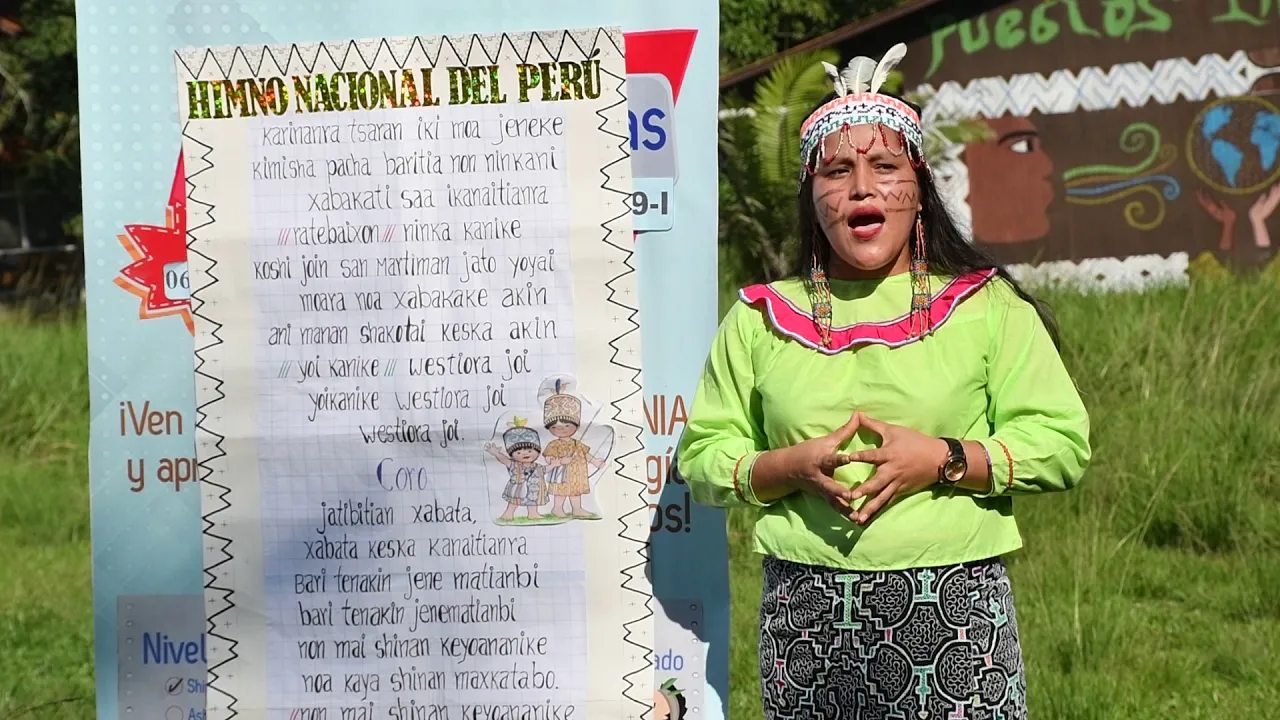 HIMNO NACIONAL DEL PERÚ
Karinanra tsaran iki moa jeneke
kimisha pacha baritia non ninkani
xabakati saa ikanaitianra
//ratebaixon// ninka kanike
Koshi join san Martiman jato yoyai
moara noa xabakake akin
ani manan shakotai keska akin
//yoi kanike// westiora joi
yoikanike westiora joi
westiora joi.
Coro
jatibitian xabata,
xabata keska kanaitianra
Bari tenakin jene matianbi
bari tenakin jenematianbi
non mai shinan keyoananike
noa kaya shinan maxkatabo.
//non mai shinan keyoananike
as
9-I
06
¡Ven
y apr
NIA
gía
os!
Nivel
Shi
ado
Pueblos In